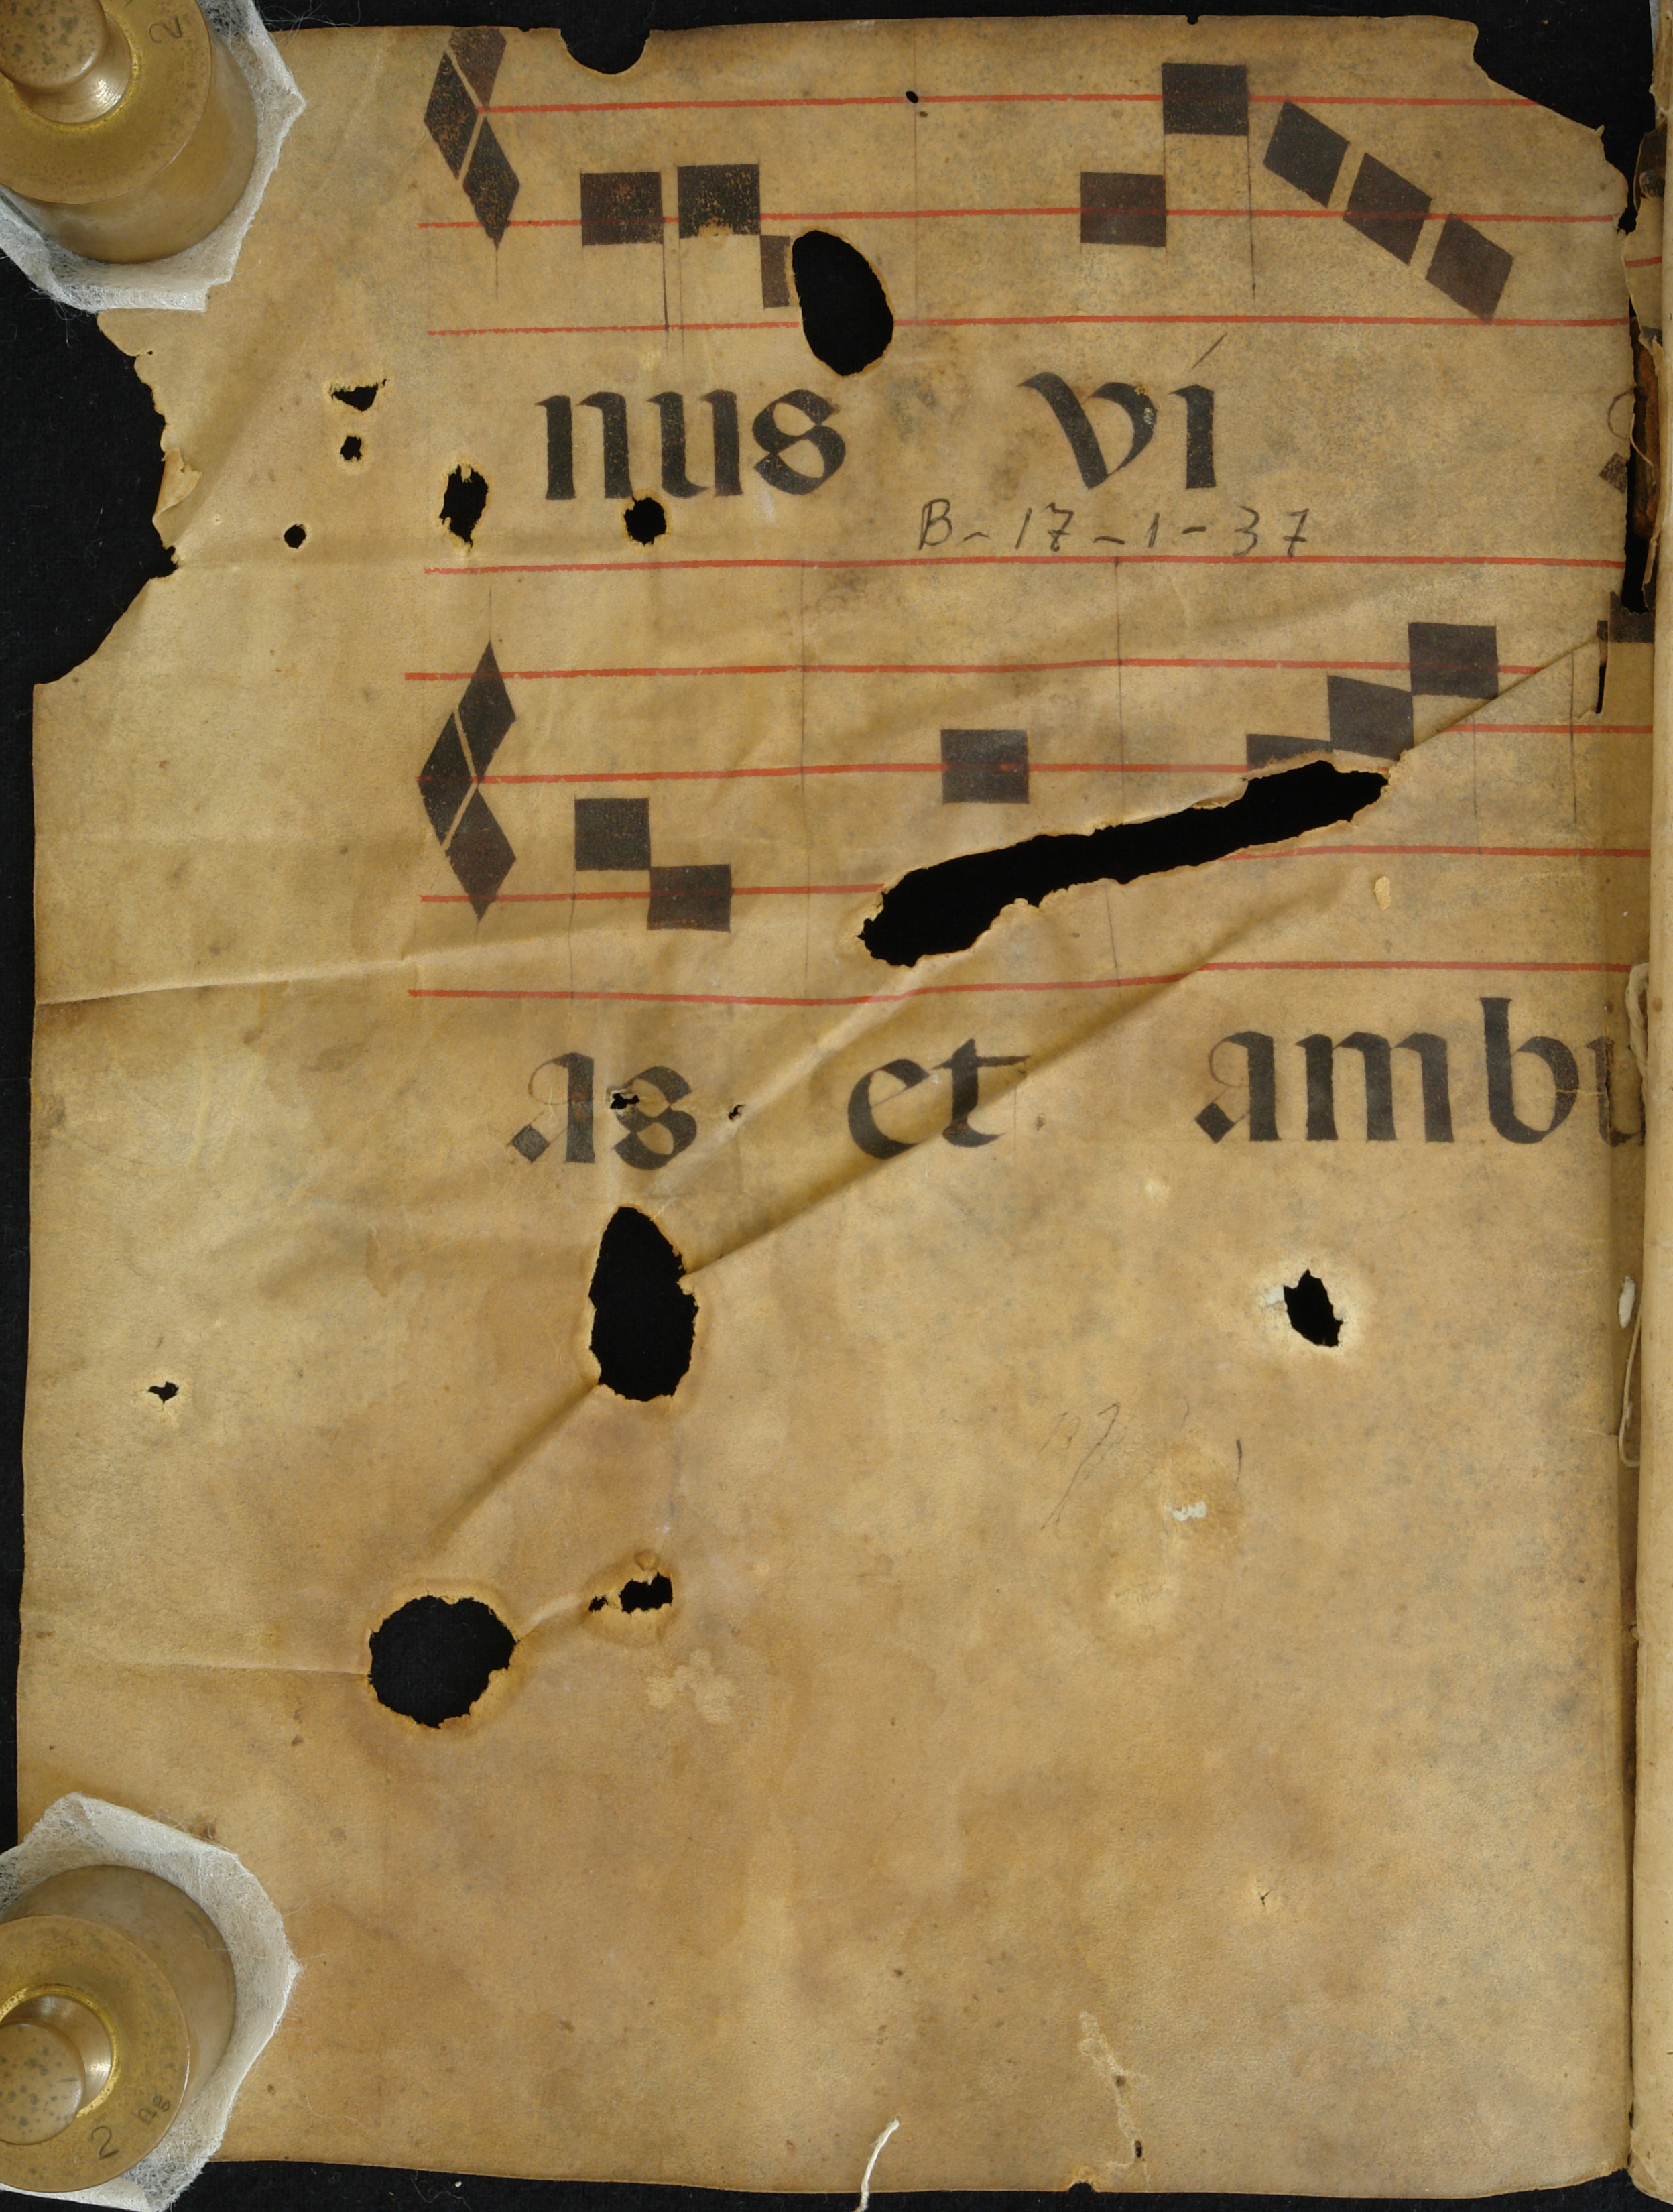 nus ví
B-17-1-37
as et ambu